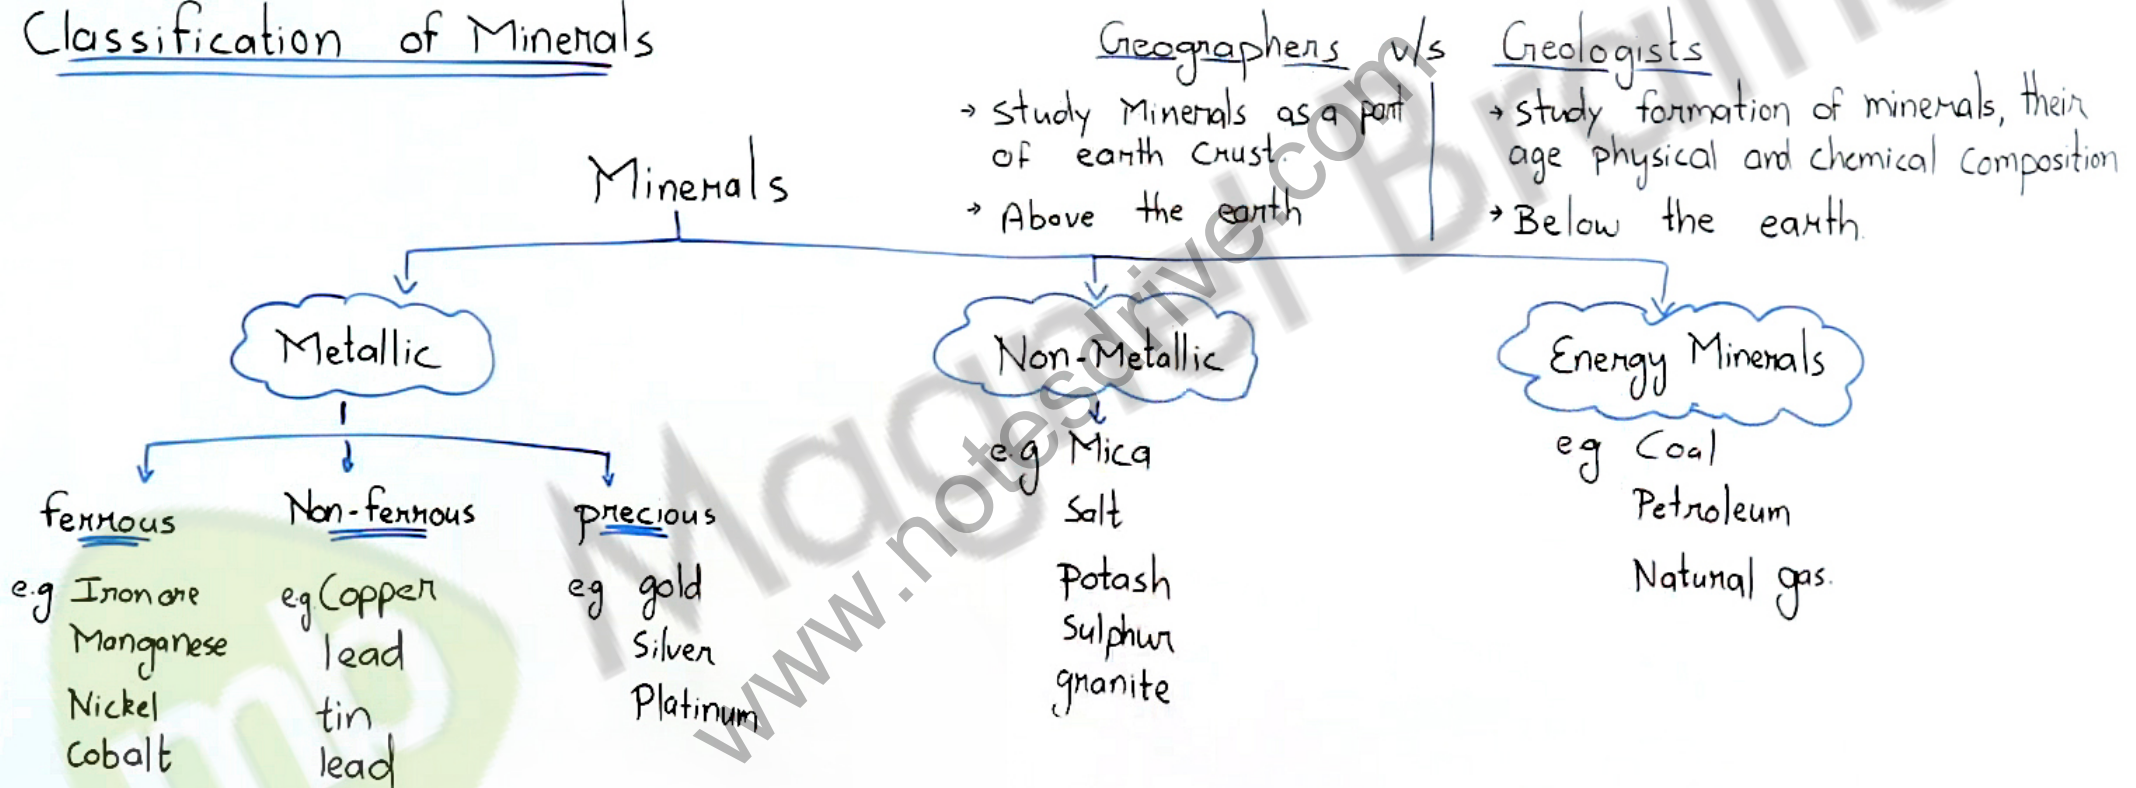 Classification of Minerals
Geographers v/s Geologists
→ Study Minerals as a part
of earth Crust.
→ Above the earth
→ Study formation of minerals, their
age physical and chemical Composition
→ Below the earth.
Minerals
Metallic
Non-Metallic
Energy Minerals
ferrous
Non-ferrous
precious
e.g Iron ore
Manganese
Nickel
Cobalt
eg Copper
lead
tin
lead
eg gold
Silver
Platinum
e.g Mica
Salt
Potash
Sulphur
granite
eg Coal
Petroleum
Natural gas.
Magnet Brains
www.notesdrive.com
mb